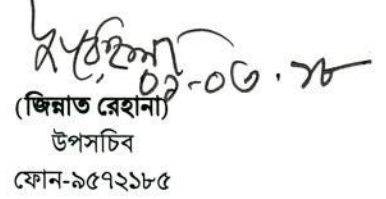 ০১-০৩-১৮
(জিন্নাত রেহানা)
উপসচিব
ফোন-৯৫৭২১৮৫